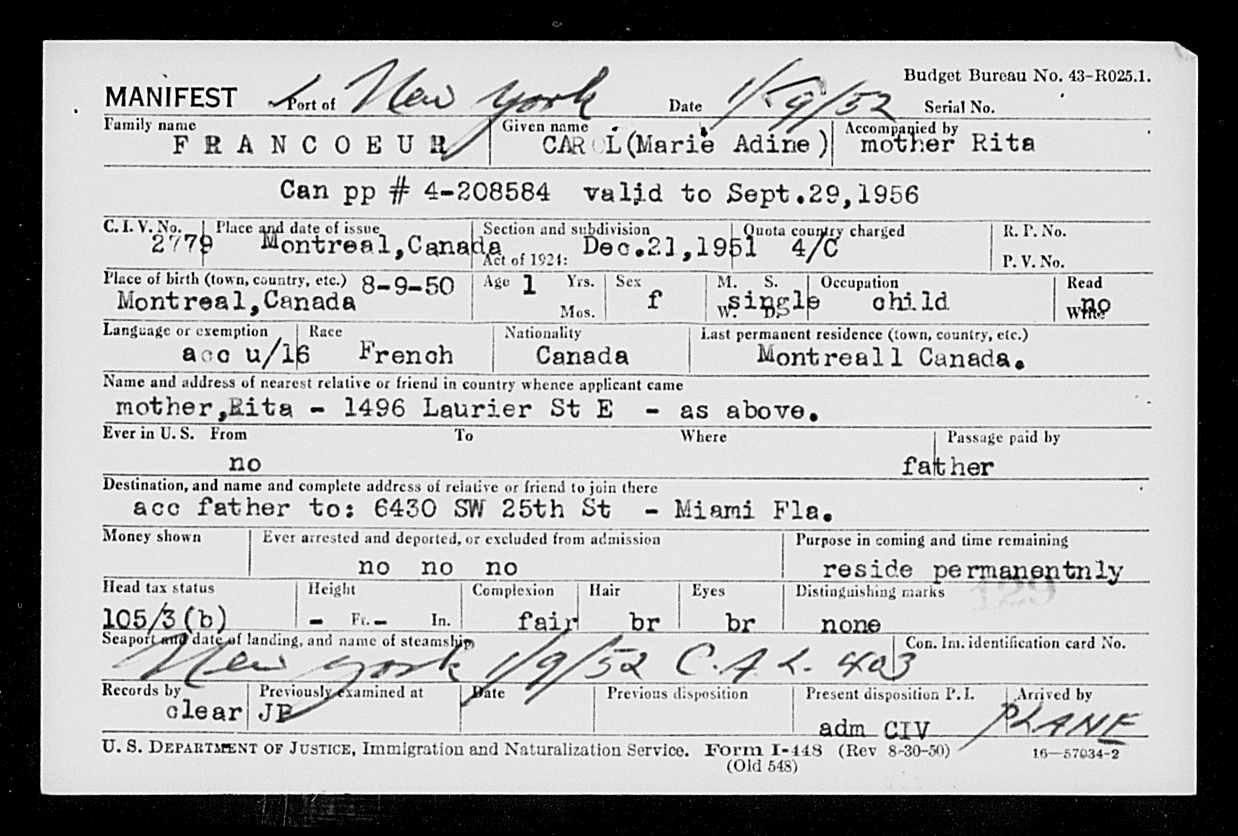 Budget Bureau No. 43-R025.1.
MANIFEST Port of New York Date 1/9/52 Serial No.
Family name Given name Accompanied by
FRANCOEUR CAROL(Marie Adine) mother Rita
Can pp # 4-208584 valid to Sept.29,1956
C. I. V. No. Place and date of issue Section and subdivision Quota country charged R. P. No.
2779 Montreal,Canada Act of 1924: Dec.21,1951 4/C P. V. No.
Place of birth (town, country, etc.) 8-9-50 Age 1 Yrs. Sex M. S. Occupation Read
Montreal,Canada Mos. f single W. D. child Write no
Language or exemption Race Nationality Last permanent residence (town, country, etc.)
acc u/16 French Canada Montreall Canada.
Name and address of nearest relative or friend in country whence applicant came
mother,Rita - 1496 Laurier St E - as above.
Ever in U. S. From To Where Passage paid by
no father
Destination, and name and complete address of relative or friend to join there
acc father to: 6430 SW 25th St - Miami Fla.
Money shown Ever arrested and deported, or excluded from admission Purpose in coming and time remaining
no no no reside permanentnly
Head tax status Height Complexion Hair Eyes Distinguishing marks 129
105/3(b) - Ft. - In. fair br br none
Seaport and date of landing, and name of steamship Con. Im. identification card No.
New York 1/9/52 C.A.L. 403
Records by Previously examined at Date Previous disposition Present disposition P. I. Arrived by
clear JP adm CIV PLANE
U. S. DEPARTMENT OF JUSTICE, Immigration and Naturalization Service. Form I-448 (Rev 8-30-50) 16—57034-2
(Old 548)